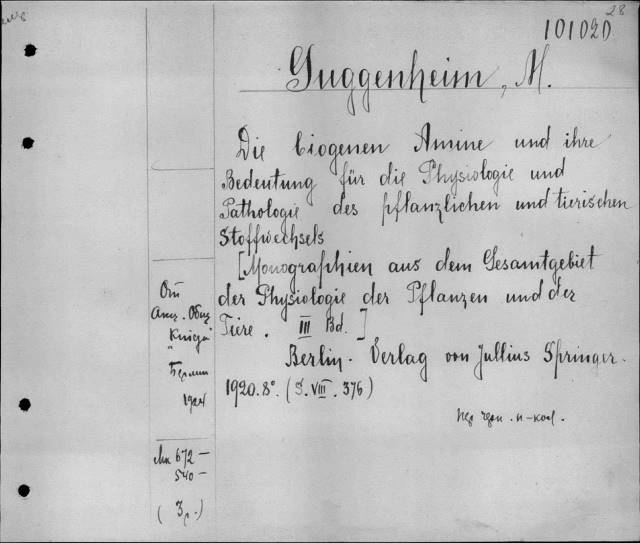 28
101020
Guggenheim, M.
Die biogenen Amine und ihre
Bedeutung für die Physiologie und
Pathologie des pflanzlichen und tierischen
Stoffwechsels
[Monographien aus dem Gesamtgebiet
der Physiologie der Pflanzen und der
Tiere. III Bd.]
Berlin. Verlag von Jullius Springer.
1920. 8°. (S. VIII. 376)
От
Книга"
Берлин
1924
672 —
540 —
( 3 р.)